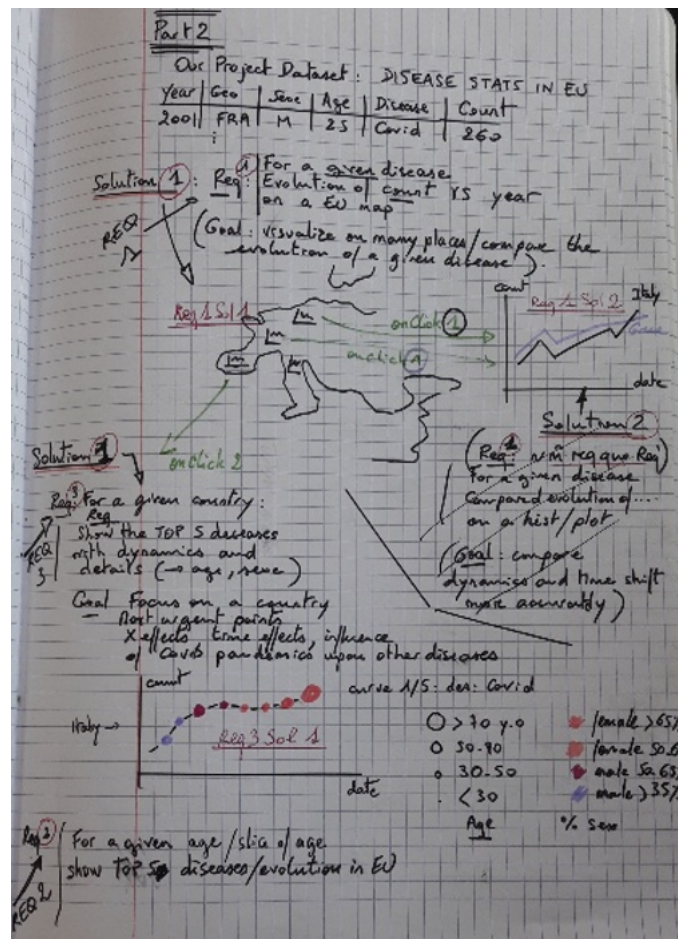 Part 2
Our Project Dataset: DISEASE STATS IN EU
Year | Geo | Sexe | Age | Disease | Count
2001 | FRA | M | 25 | Covid | 260
Solution 1: Req 1: For a given disease
Evolution of count vs year
on a EU map
REQ 1
(Goal: visualize on many places/compare the
evolution of a given disease).
Req 1 Sol 1
onClick 1
onclick 1
onClick 2
count
Req 1 Sol 2
Italy
date
Solution 2
(Req 1: ~ m̂ req que Req)
For a given disease
Compared evolution of....
on a hist/plot
(Goal: compare
dynamics and time shift
more accurately)
Solution 1
Req 3: For a given country:
Req
REQ 3
show the TOP 5 diseases
with dynamics and
details (→ age, sexe)
Goal Focus on a country
Most urgent points
X effects time effects, influence
of Covid pandemics upon other diseases
count
Italy →
Req 3 Sol 1
date
curve 1/5: des: Covid
> 70 y.o
50-70
30-50
< 30
Age
female > 65%
female 50
male 50 65%
male > 35%
% sexe
Req 2 For a given age/slice of age
show TOP 5 diseases/evolution in EU
REQ 2